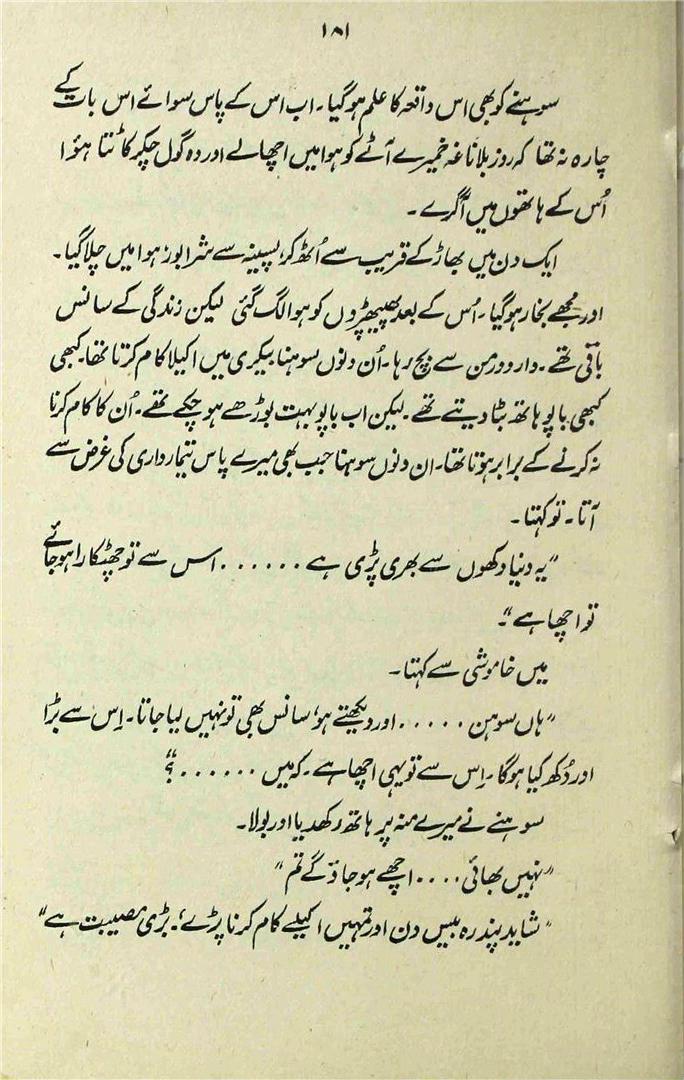 ۱۸۱
سوہنے کو بھی اس واقعہ کا علم ہو گیا۔ اب اس کے پاس سوائے اس بات کے
چارہ نہ تھا کہ روز بلاناغہ خمیرے آٹے کو ہوا میں اچھالے اور وہ گول چکر کاٹتا ہؤا
اُس کے ہاتھوں میں آگرے۔
ایک دن میں بھاڑ کے قریب سے اُٹھ کر پسینہ سے شرابور ہوا میں چلا گیا۔
اور مجھے بخار ہو گیا۔ اُس کے بعد پھیپھڑوں کو ہوا لگ گئی لیکن زندگی کے سانس
باقی تھے۔ دار و درمن سے بچ رہا۔ اُن دنوں سوہنا بیکری میں اکیلا کام کرتا تھا۔ کبھی
کبھی باپو ہاتھ بٹا دیتے تھے۔ لیکن اب باپو بہت بوڑھے ہو چکے تھے۔ اُن کا کام کرنا
نہ کرنے کے برابر ہوتا تھا۔ ان دنوں سوہنا جب بھی میرے پاس تیمارداری کی غرض سے
آتا۔ تو کہتا۔
”یہ دنیا دکھوں سے بھری پڑی ہے ...... اس سے تو چھٹکارا ہو جائے
تو اچھا ہے“۔
میں خاموشی سے کہتا۔
”ہاں سوہن ..... اور دیکھتے ہو، سانس بھی تو نہیں لیا جاتا۔ اِس سے بڑا
اور دُکھ کیا ہوگا۔ اِس سے تو یہی اچھا ہے۔ کہ میں ......؟“
سوہنے نے میرے منہ پر ہاتھ رکھدیا اور بولا۔
”نہیں بھائی .... اچھے ہو جاؤ گے تم“
”شاید پندرہ بیس دن اور تمہیں اکیلے کام کرنا پڑے؛ بڑی مصیبت ہے“